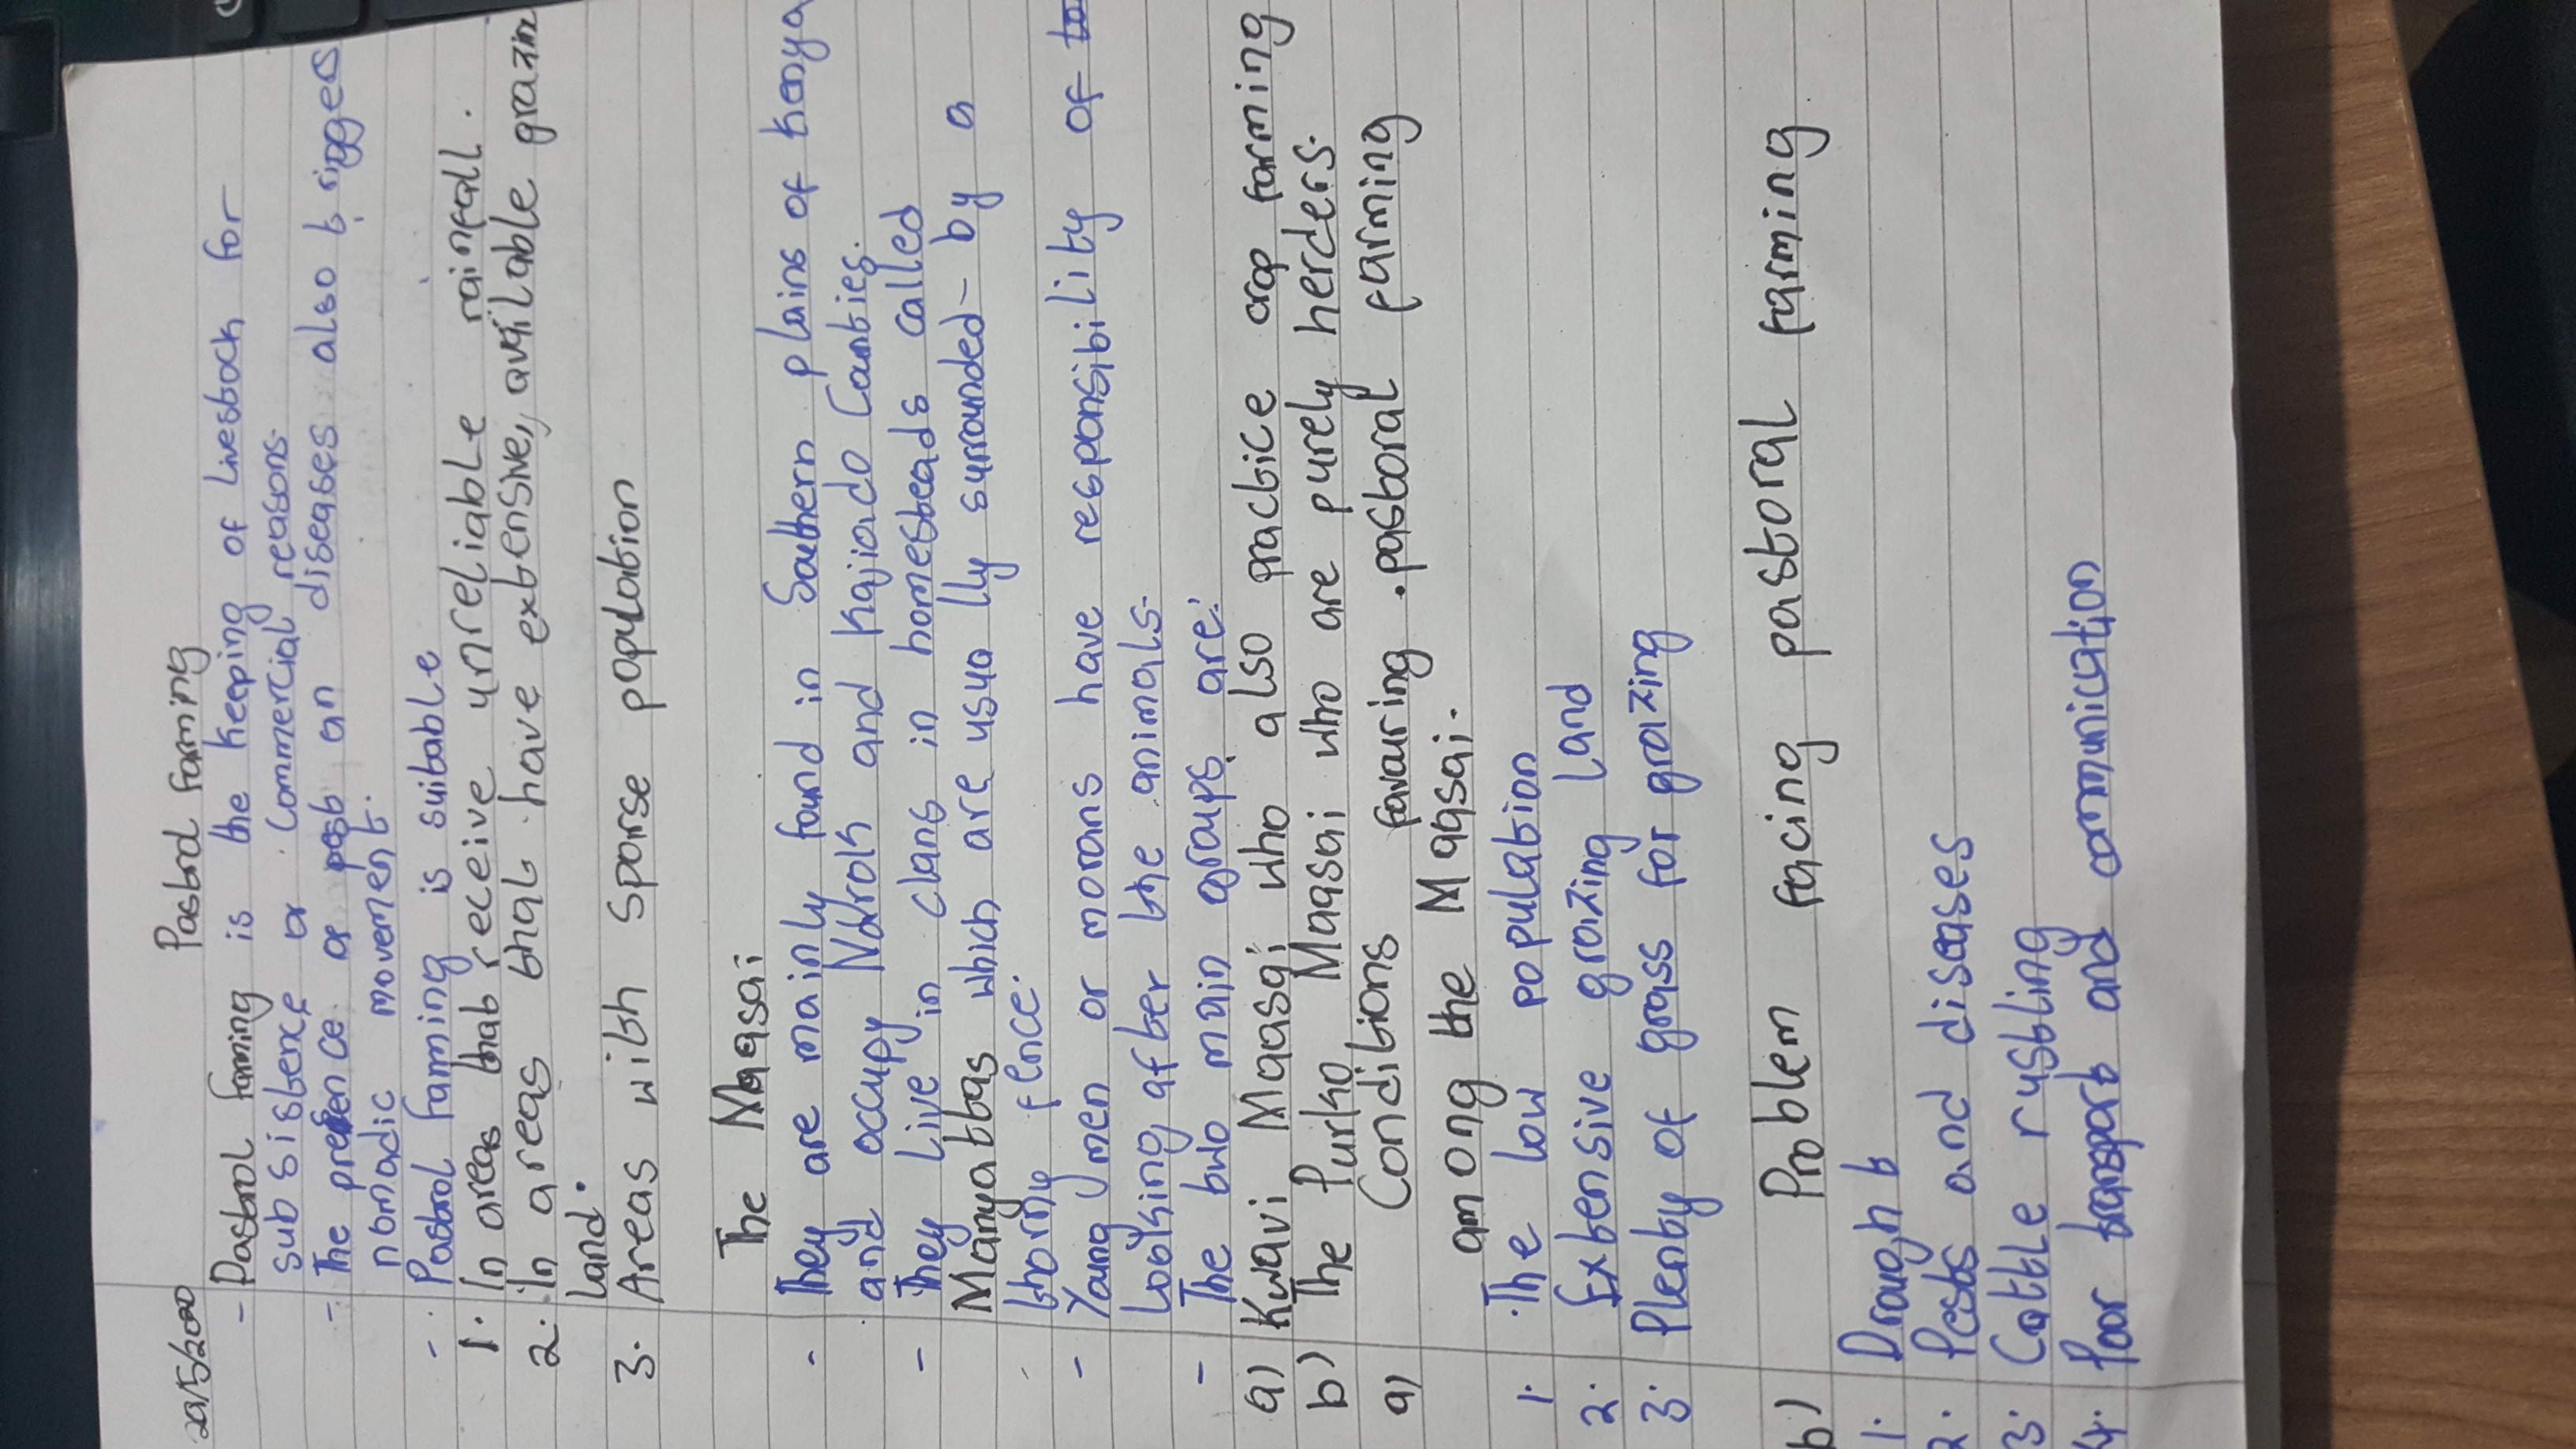 29/5/2020 Pastrol farming
- Pastrol farming is the keeping of livestock for
subsistence or commercial reasons.
- The presence of pest an diseases also triggers
nomadic movement.
- Pastrol farming is suitable
1. In areas that receive unreliable rainfall.
2. In areas that have extensive, available grazin
land.
3. Areas with sparse population
The Maasai
- They are mainly found in Southern plains of Kenya
and occupy Narok and Kajiado Counties.
- They live in clans in homesteads called
Manyattas which are usually surrounded by a
- thorny fence.
- Young men or morans have responsibility of to
looking after the animals.
- The two main groups are:
a) Kwavi Maasai who also practice crop farming
b) The Purko Maasai who are purely herders.
a) Conditions favouring pastoral farming
among the Maasai.
1. The low population
2. Extensive grazing land
3. Plenty of grass for grazing
b) Problem facing pastoral farming
1. Drought
2. Pests and diseases
3. Cattle rustling
4. Poor transport and communication